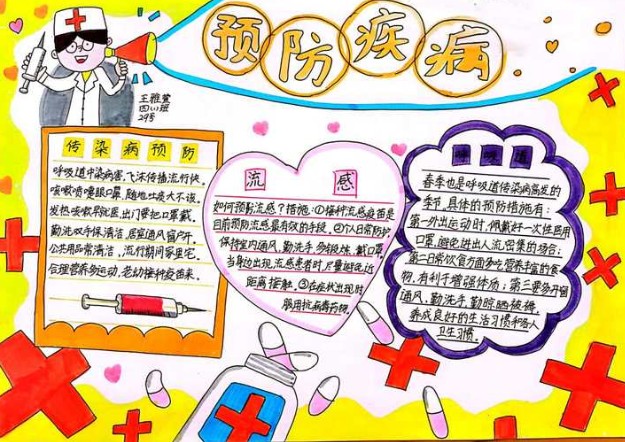 预防疾病
王雅萱
四(1)班
29号
传染病预防
呼吸道中染病害,飞沫传播流行快。
咳嗽喷嚏眼口罩,随地吐痰大不该。
发热咳嗽早就医,出门要把口罩戴。
勤洗双手保清洁,居室通风窗户开。
公共用品常清洁,流行期间家里宅。
合理营养多运动,老幼接种疫苗来。
流感
如何预防流感?措施:①接种流感疫苗是
目前预防流感最有效的手段。②个人日常防护
保持室内通风,勤洗手多锻炼,戴口罩,
当身边出现流感患者时,尽量避免近
距离接触。③在症状出现时
服用抗病毒药物。
呼吸道
春季也是呼吸道传染病高发的
季节,具体的预防措施有:
第一外出运动时,佩戴好一次性医用
口罩,避免进出人流密集的场合;
第二日常饮食方面多吃营养丰富的食
物,有利于增强体质;第三要多开窗
通风,勤洗手勤晾晒被褥,
养成良好的生活习惯和个人
卫生习惯。